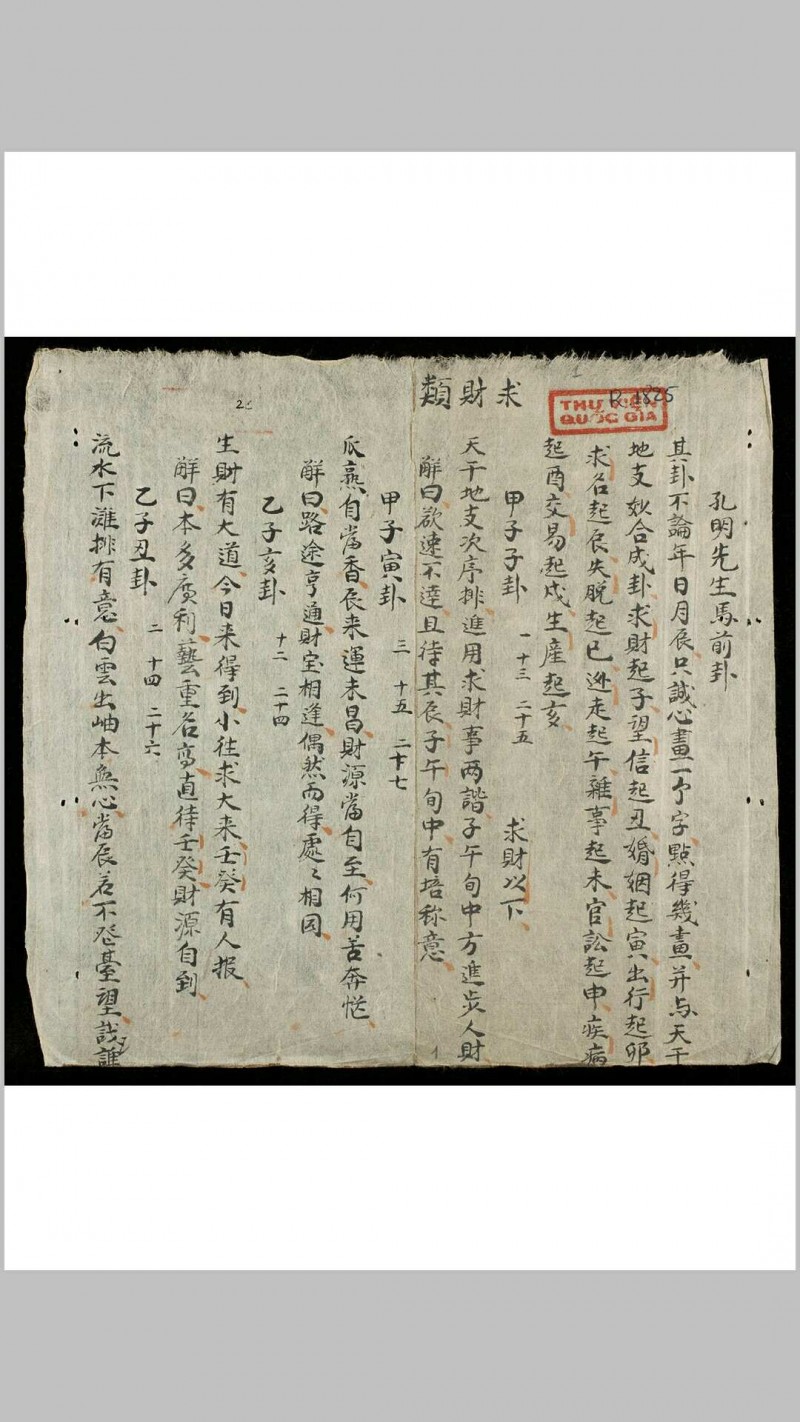 孔明先生馬前卦
其卦不論年日月辰只誠心畫一个字點得幾畫并与天干
地支妙合成卦求財起子望信起丑婚姻起寅出行起卯
求名起辰失脱起巳迯走起午雜事起未官訟起申疾病
起酉交易起戌生產起亥
THƯ VIỆN
QUỐC GIA
求財類
甲子子卦 一 十三 二十五 求財以下
天干地支次序排進用求財事两諧子午旬中方進步人財
解曰欲速不達且待其辰子午旬中有培称意
甲子寅卦 三 十五 二十七
瓜熟自當香辰来運未昌財源當自至何用苦奔忙
解曰路途亨通財宝相逢偶然而得處〻相因
乙子亥卦 十二 二十四
生財有大道今日来得到小往求大来壬癸有人报
解曰本多廣利藝重名高直待壬癸財源自到
乙子丑卦 二 十四 二十六
流水下灘排有意白雲出岫本無心當辰若不登臺望哉誰